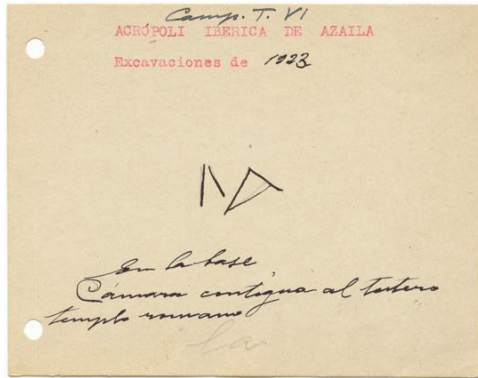 Camp. T. VI
ACRÓPOLI IBERICA DE AZAILA
Excavaciones de 1923
En la base
Cámara contigua al
templo romano